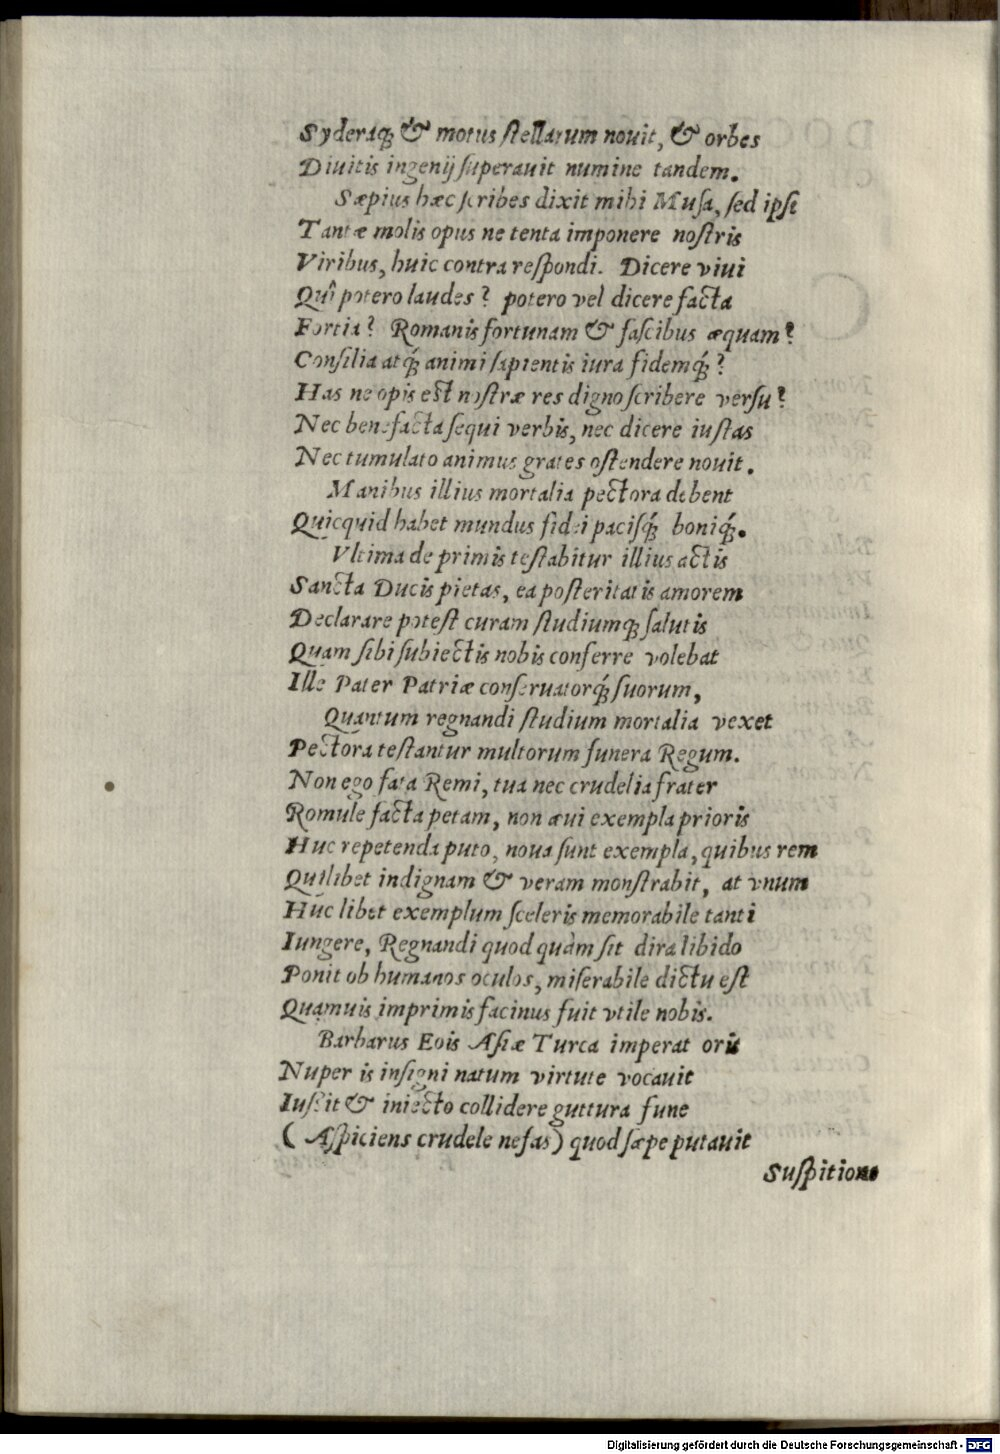 Syderaq́; & motus ſtellarum nouit, & orbes
Diuitis ingenij ſuperauit numine tandem.
Sæpius hæc ſcribes dixit mihi Muſa, ſed ipſe
Tantæ molis opus ne tenta imponere noſtris
Viribus, huic contra reſpondi. Dicere viui
Quî potero laudes? potero vel dicere facta
Fortia? Romanis fortunam & faſcibus æquam?
Conſilia atq́; animi ſapientis iura fidemq́;?
Has ne opis eſt noſtræ res digno ſcribere verſu?
Nec benefacta ſequi verbis, nec dicere iuſtas
Nec tumulato animus grates oſtendere nouit.
Manibus illius mortalia pectora debent
Quicquid habet mundus fidei paciſq́; boniq́;.
Vltima de primis teſtabitur illius actis
Sancta Ducis pietas, ea poſteritatis amorem
Declarare poteſt curam ſtudiumq́; ſalutis
Quam ſibi ſubiectis nobis conferre volebat
Ille Pater Patriæ conſeruatorq́; ſuorum,
Quantum regnandi ſtudium mortalia vexet
Pectora teſtantur multorum funera Regum.
Non ego fata Remi, tua nec crudelia frater
Romule facta petam, non æui exempla prioris
Huc repetenda puto, noua ſunt exempla, quibus rem
Quilibet indignam & veram monſtrabit, at vnum
Huc libet exemplum ſceleris memorabile tanti
Iungere, Regnandi quod quàm ſit dira libido
Ponit ob humanos oculos, miſerabile dictu eſt
Quamuis imprimis facinus fuit vtile nobis.
Barbarus Eois Aſiæ Turca imperat oris
Nuper is inſigni natum virtute vocauit
Iußit & iniecto collidere guttura fune
(Aſpiciens crudele nefas) quod ſæpe putauit
Suſpitione
Digitalisierung gefördert durch die Deutsche Forschungsgemeinschaft - DFG